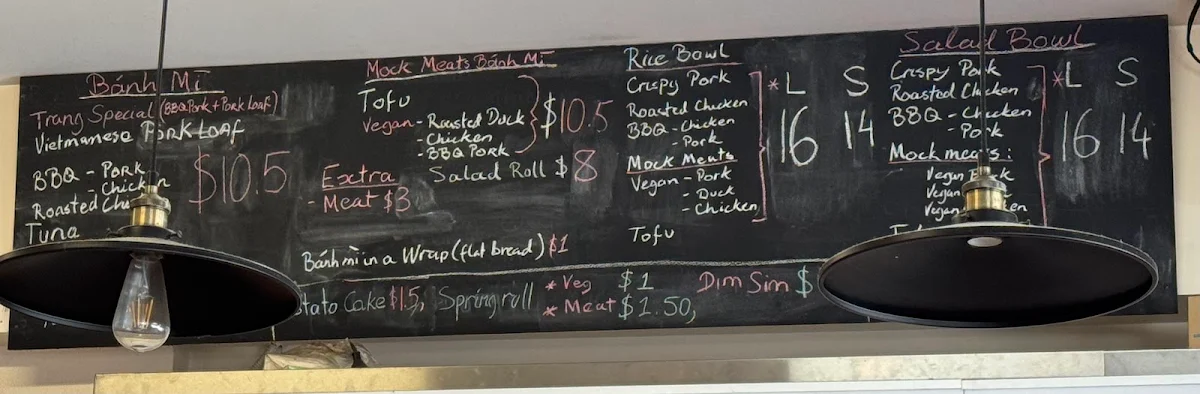 Bánh Mì
Trang Special (BBQ Pork + Pork Loaf)
Vietnamese Pork Loaf
BBQ - Pork
- Chicken
Roasted
Tuna
$10.5
Mock Meats Bánh Mì
Tofu
Vegan - Roasted Duck
- Chicken
- BBQ Pork
$10.5
Salad Roll $8
Extra
- Meat $3
Bánh mì in a Wrap (flat bread) $1
Cake $1.5, Spring roll
* Veg $1
* Meat $1.50,
Dim Sim $
Rice Bowl
Crispy Pork
Roasted Chicken
BBQ - Chicken
- Pork
Mock Meats
Vegan - Pork
- Duck
- Chicken
Tofu
*L S
16 14
Salad Bowl
Crispy Pork
Roasted Chicken
BBQ - Chicken
- Pork
Mock meats:
Vegan
Vegan
Vegan
*L S
16 14